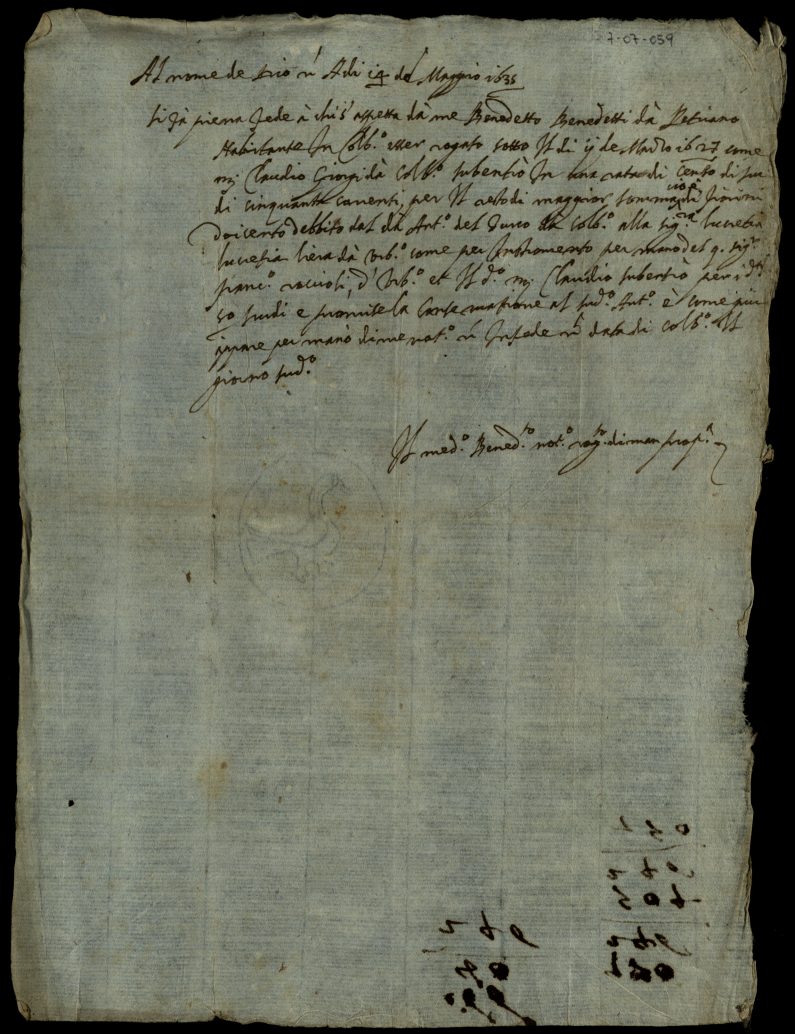 7-07-059
Al nome de Dio Adi 14 de Maggio 1635
si fà piena fede à chi s'aspetta dà me Benedetto Benedetti dà Petriano
Habitante In Colb.º esser rogato sotto Il di ij de Marzo 1627 come
m.ʳ Claudio Giorgi dà Colb.º subentrò In una rata di Cento di scu
di cinquanta correnti, per Il resto di maggior somma cioè di fiorini
doicento debbito dal dà Ant.º del Turco da Colb.º alla sig.ʳᵃ lucretia
lucretia da Urb.º come per Instromento per mano del q. sig.ʳ
Franc.º d'Urb.º et Il d.º m.ʳ Claudio subentrò per i d.ᵗⁱ
50 scudi e promise la conservatione al sud.º Ant.º è come più
appare per mano di me not.º In fede data di Colb.º Il
giorno sud.º
Il med.º Bened.ᵗᵒ not.º rog.ᵗᵒ di man prop.ᵃ